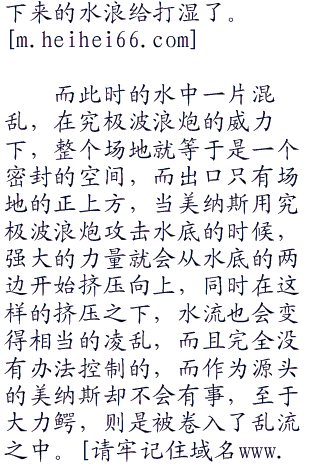 下来的水浪给打湿了。
[m.heihei66.com]
而此时的水中一片混
乱，在究极波浪炮的威力
下，整个场地就等于是一个
密封的空间，而出口只有场
地的正上方，当美纳斯用究
极波浪炮攻击水底的时候，
强大的力量就会从水底的两
边开始挤压向上，同时在这
样的挤压之下，水流也会变
得相当的凌乱，而且完全没
有办法控制的，而作为源头
的美纳斯却不会有事，至于
大力鳄，则是被卷入了乱流
之中。[请牢记住域名www.